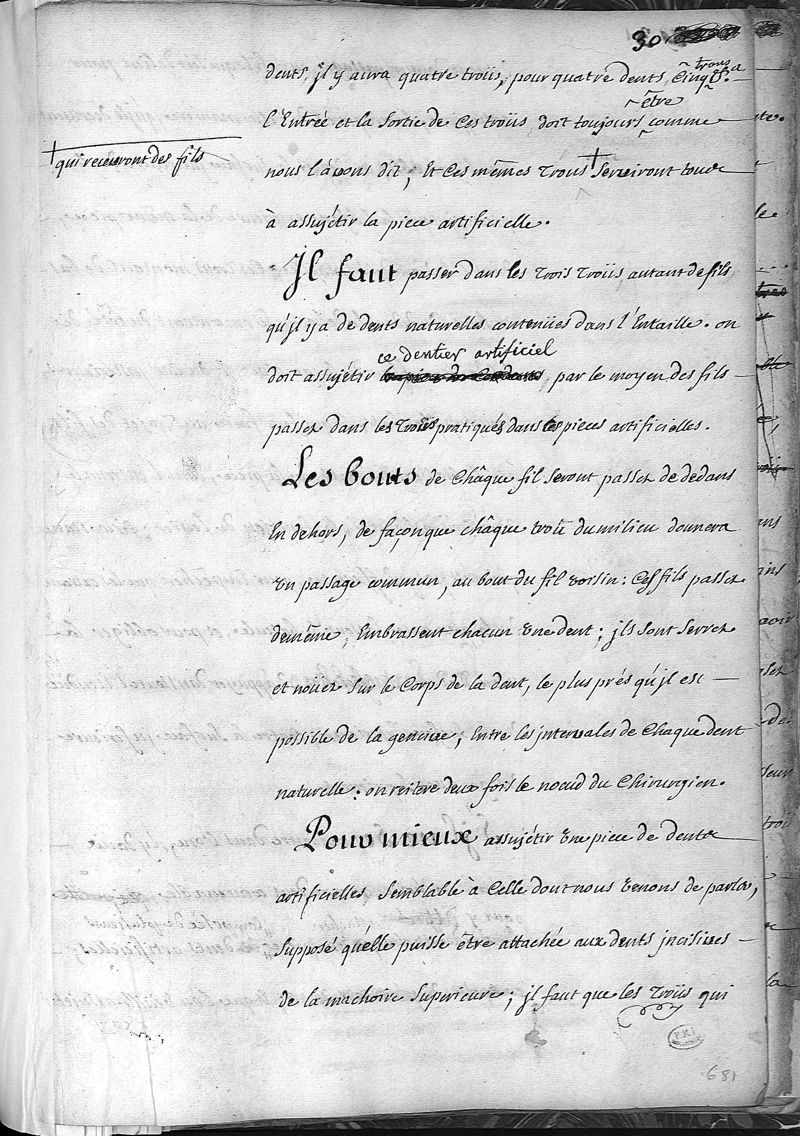 30
dents, jl y aura quatre troüs, pour quatre dents, Cinq trous &.a
l'Entrée et la Sortie de Ces troüs, doit toujours être comme
† qui recevront des fils
nous l'avons dit; Et Ces mêmes Trous † Serviront tous
à assujétir la piece artificielle.
Jl faut passer dans les Trois Troüs, autant de fils
qu'jl y a de dents naturelles contenües dans l'Entaille. on
doit assujétir ce dentier artificiel, par le moyen des fils
passez dans les Troüs pratiqués dans les pieces artificielles.
Les bouts de Châque fil Seront passez de dedans
En dehors, de façon que châque troü du milieu donnera
un passage commun, au bout du fil voisin: Ces fils passez
de même, Embrassent chacun une dent; jls sont Serrez
et noüez sur le Corps de la dent, le plus prés qu'jl est
possible de la gencive; Entre les jntervales de Chaque dent
naturelle: on reïtere deux fois le noeud du Chirurgien.
Pour mieux assujétir une piece de dents
artificielles, Semblable à Celle dont nous venons de parler,
Supposé qu'elle puisse être attachée aux dents jncisives
de la machoire Superieure; jl faut que les Troüs qui
681